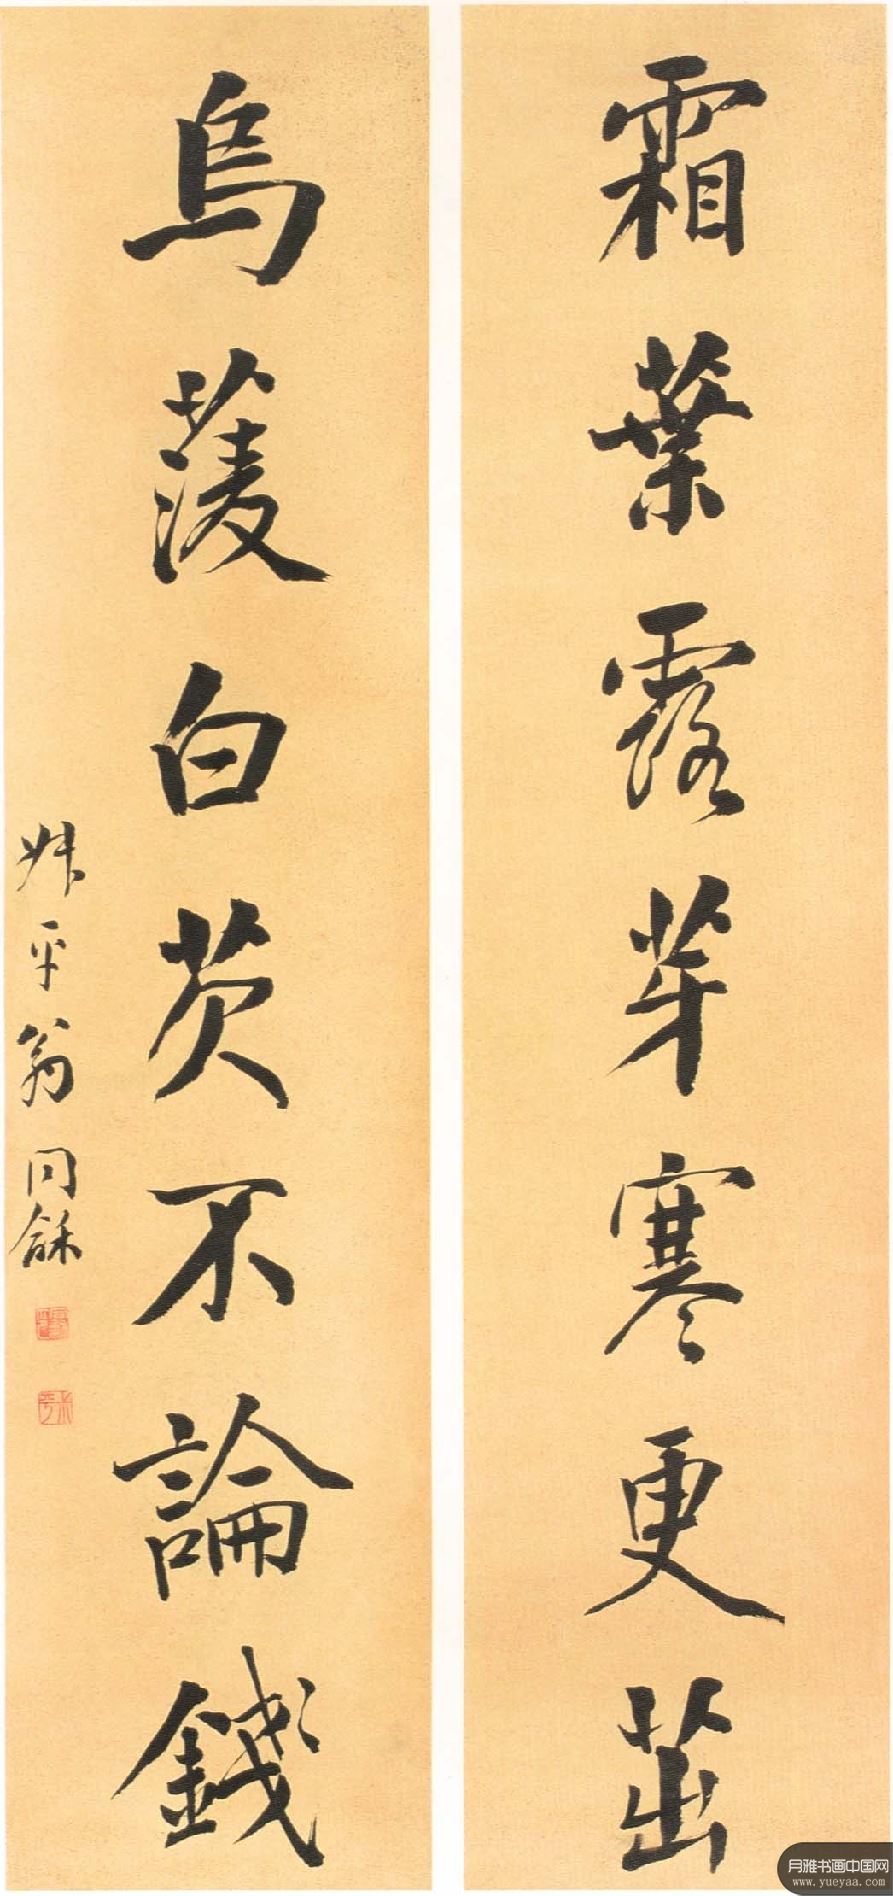 霜葉露芽寒更茁
烏菱白芡不論錢
叔平翁同龢
月雅书画中国网
www.yueyaa.com